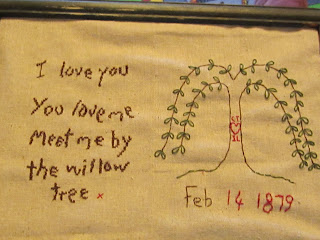 I love you
You love me
Meet me by
the willow
tree x
Feb 14 1879